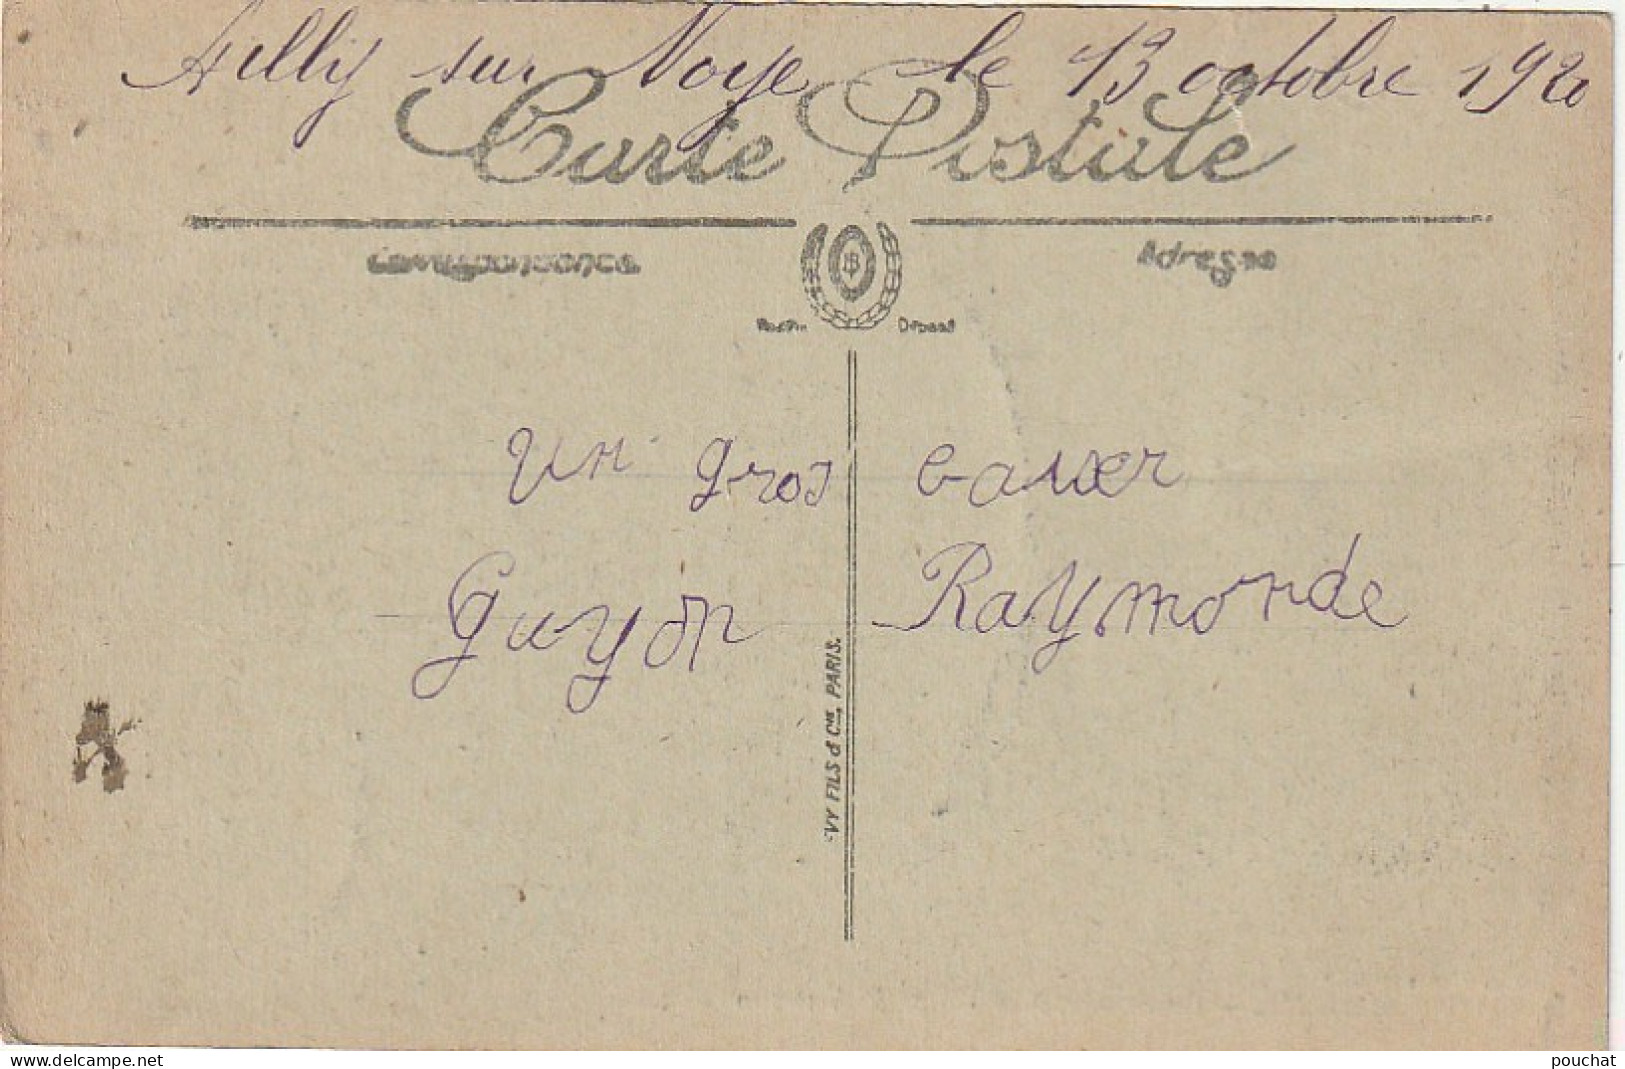 Ailly sur Noye le 13 octobre 1920
Carte Postale
Correspondance
Adresse
B
Déposé
Un gros baiser
Guyon Raymonde
VY FILS & Cie, PARIS.
www.delcampe.net
pouchat